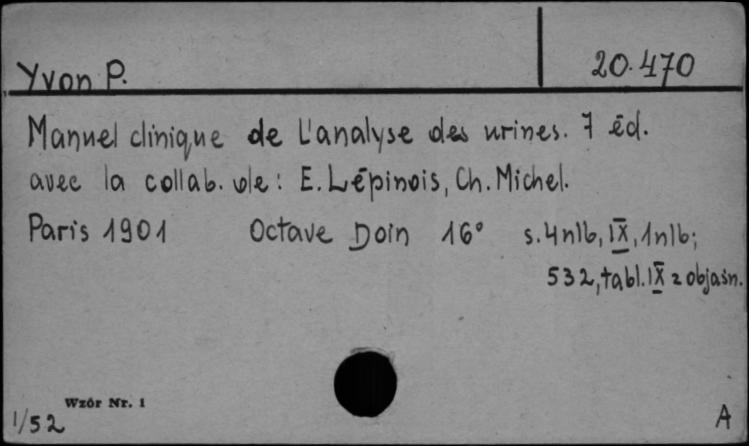 Yvon P.
20.470
Manuel clinique de L'analyse des urines. 7 éd.
avec la collab. de: E. Lépinois, Ch. Michel.
Paris 1901 Octave Doin 16° s. 4 nlb, IX, 1 nlb;
532, tabl. IX z objaśn.
Wzór Nr. 1
1/52
A